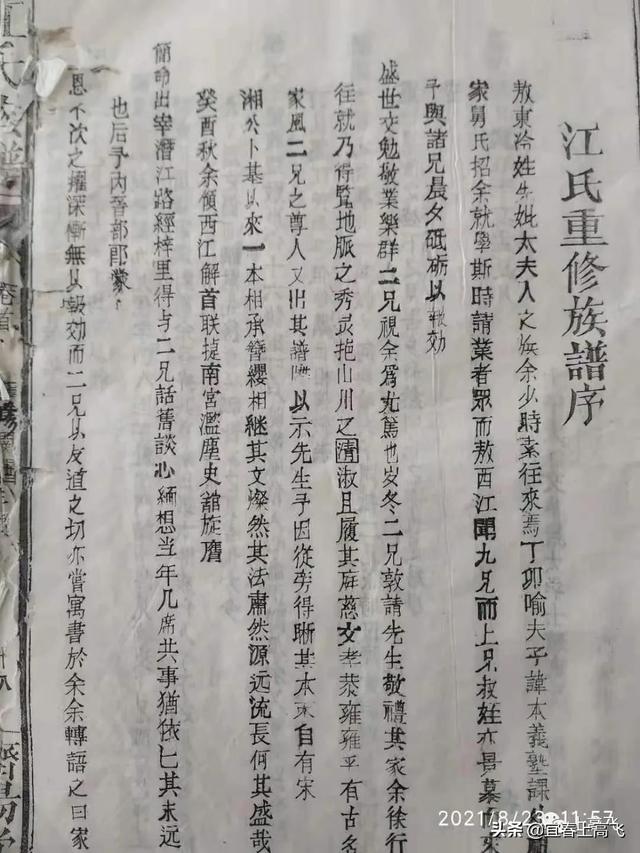 江氏重修族譜序
敖東冷姓先妣太夫人之族余少時素往來焉丁卯喻夫子諱本義塾課
家舅氏招余就學斯時請業者眾而敖西江聞九兄而上兄叔姪亦景慕
予與諸兄晨夕砥砺以報効
盛世交勉敬業樂群二兄視余爲尤篤也岁冬二兄敦請先生敬禮其家余徒行
往就乃得覧地脈之秀灵抱山川之清淑且履其庭慈父孝恭雍雍乎有古名
家風二兄之尊人又出其譜牒以示先生予因從旁得晰其本末自有宋
湘公卜基以來一本相承簪纓相継其文燦然其法肅然源远流長何其盛哉
癸酉秋余領西江解首联捷南宮濫塵史舘旋膺
簡命出宰潛江路經梓里得与二兄話舊談心緬想当年几席共事猶依匕其末远
也后予内晉部郎蒙
恩不次之擢深慚無以報効而二兄以友道之切亦嘗寓書於余余轉語之曰家
江氏
卷首
2021/8/23 11:57
头条@宜春王高飞